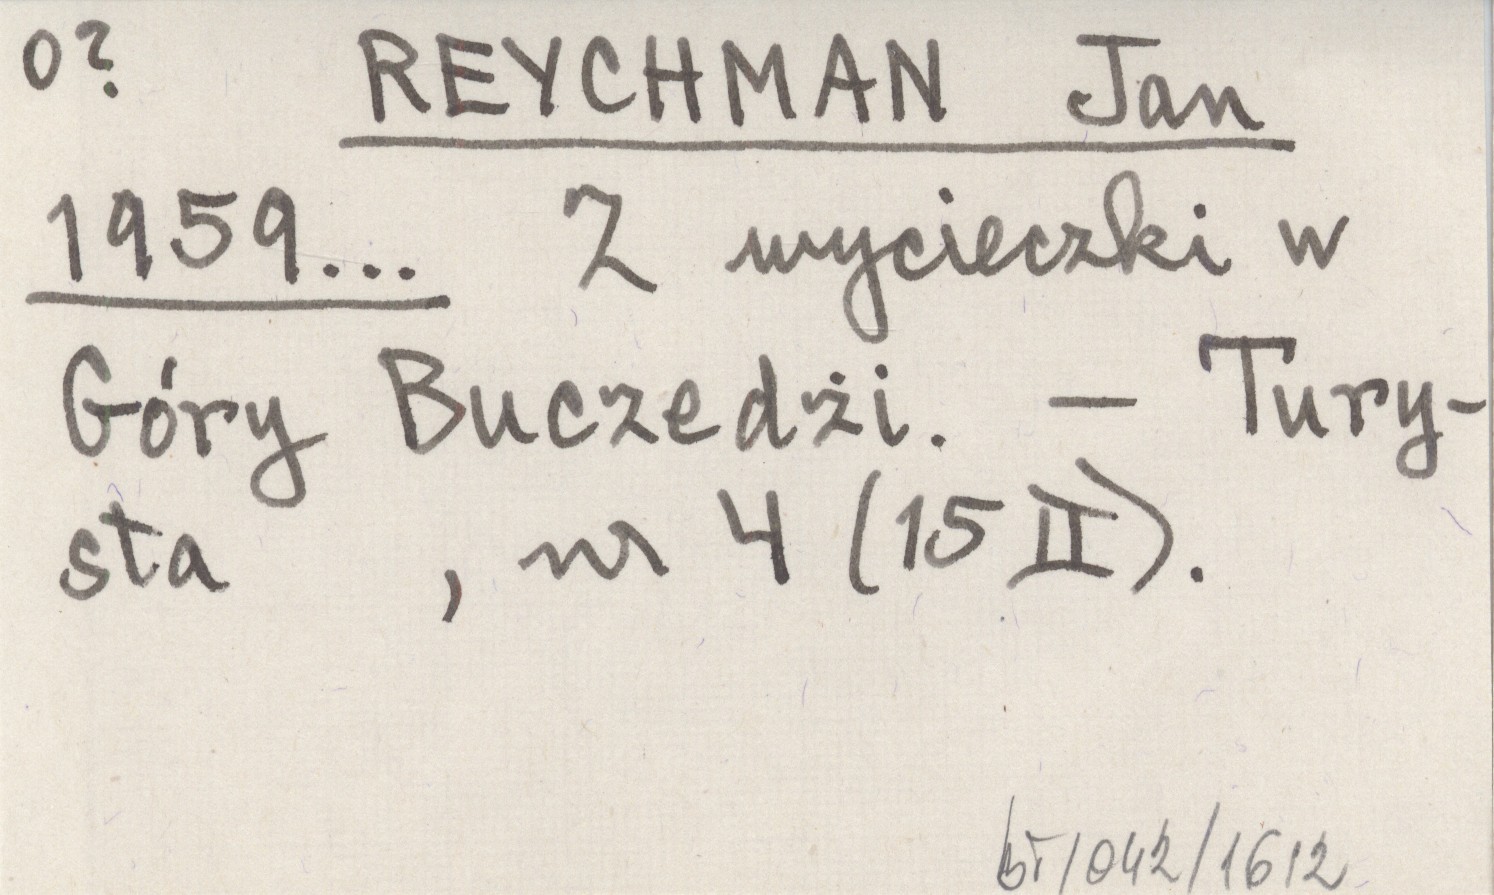 o? REYCHMAN Jan
1959... Z wycieczki w
Góry Buczedżi. – Tury-
sta , nr 4 (15 II).
bł/042/1612